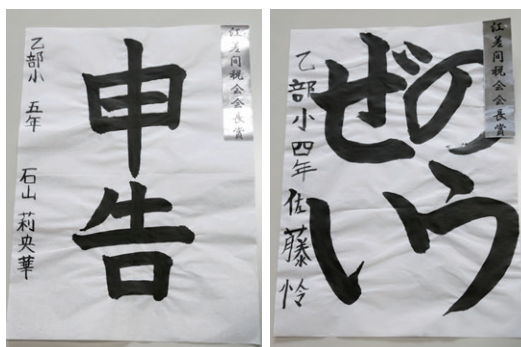 江差間税会会長賞
申告
乙部小 五年 石山 莉央華
江差間税会会長賞
のう
ぜい
乙部小四年 佐藤怜